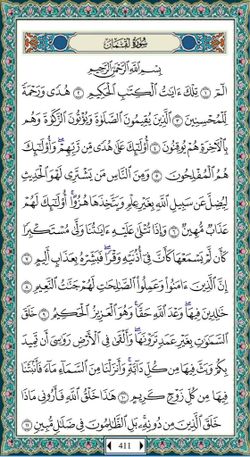 سُورَةُ لُقْمَانَ
بِسْمِ ٱللَّهِ ٱلرَّحْمَٰنِ ٱلرَّحِيمِ
الٓمٓ ١ تِلْكَ ءَايَٰتُ ٱلْكِتَٰبِ ٱلْحَكِيمِ ٢ هُدًى وَرَحْمَةً
لِّلْمُحْسِنِينَ ٣ ٱلَّذِينَ يُقِيمُونَ ٱلصَّلَوٰةَ وَيُؤْتُونَ ٱلزَّكَوٰةَ وَهُم
بِٱلْءَاخِرَةِ هُمْ يُوقِنُونَ ٤ أُو۟لَٰٓئِكَ عَلَىٰ هُدًى مِّن رَّبِّهِمْ ۖ وَأُو۟لَٰٓئِكَ
هُمُ ٱلْمُفْلِحُونَ ٥ وَمِنَ ٱلنَّاسِ مَن يَشْتَرِى لَهْوَ ٱلْحَدِيثِ
لِيُضِلَّ عَن سَبِيلِ ٱللَّهِ بِغَيْرِ عِلْمٍ وَيَتَّخِذَهَا هُزُوًا ۚ أُو۟لَٰٓئِكَ لَهُمْ
عَذَابٌ مُّهِينٌ ٦ وَإِذَا تُتْلَىٰ عَلَيْهِ ءَايَٰتُنَا وَلَّىٰ مُسْتَكْبِرًا
كَأَن لَّمْ يَسْمَعْهَا كَأَنَّ فِىٓ أُذُنَيْهِ وَقْرًا ۖ فَبَشِّرْهُ بِعَذَابٍ أَلِيمٍ ٧
إِنَّ ٱلَّذِينَ ءَامَنُوا۟ وَعَمِلُوا۟ ٱلصَّٰلِحَٰتِ لَهُمْ جَنَّٰتُ ٱلنَّعِيمِ ٨
خَٰلِدِينَ فِيهَا ۖ وَعْدَ ٱللَّهِ حَقًّا ۚ وَهُوَ ٱلْعَزِيزُ ٱلْحَكِيمُ ٩ خَلَقَ
ٱلسَّمَٰوَٰتِ بِغَيْرِ عَمَدٍ تَرَوْنَهَا ۖ وَأَلْقَىٰ فِى ٱلْأَرْضِ رَوَٰسِىَ أَن تَمِيدَ
بِكُمْ وَبَثَّ فِيهَا مِن كُلِّ دَآبَّةٍ ۚ وَأَنزَلْنَا مِنَ ٱلسَّمَآءِ مَآءً فَأَنۢبَتْنَا
فِيهَا مِن كُلِّ زَوْجٍ كَرِيمٍ ١٠ هَٰذَا خَلْقُ ٱللَّهِ فَأَرُونِى مَاذَا
خَلَقَ ٱلَّذِينَ مِن دُونِهِۦ ۚ بَلِ ٱلظَّٰلِمُونَ فِى ضَلَٰلٍ مُّبِينٍ ١١
411